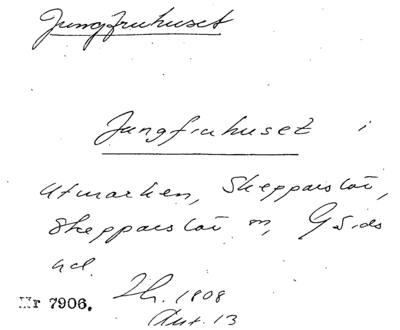 Jungfruhuset
Jungfruhuset i
Utmarken, Skepparslöv,
Skepparslöv sn, G-ds
hd.
Nr 7906. Th. 1808
Aut. 13